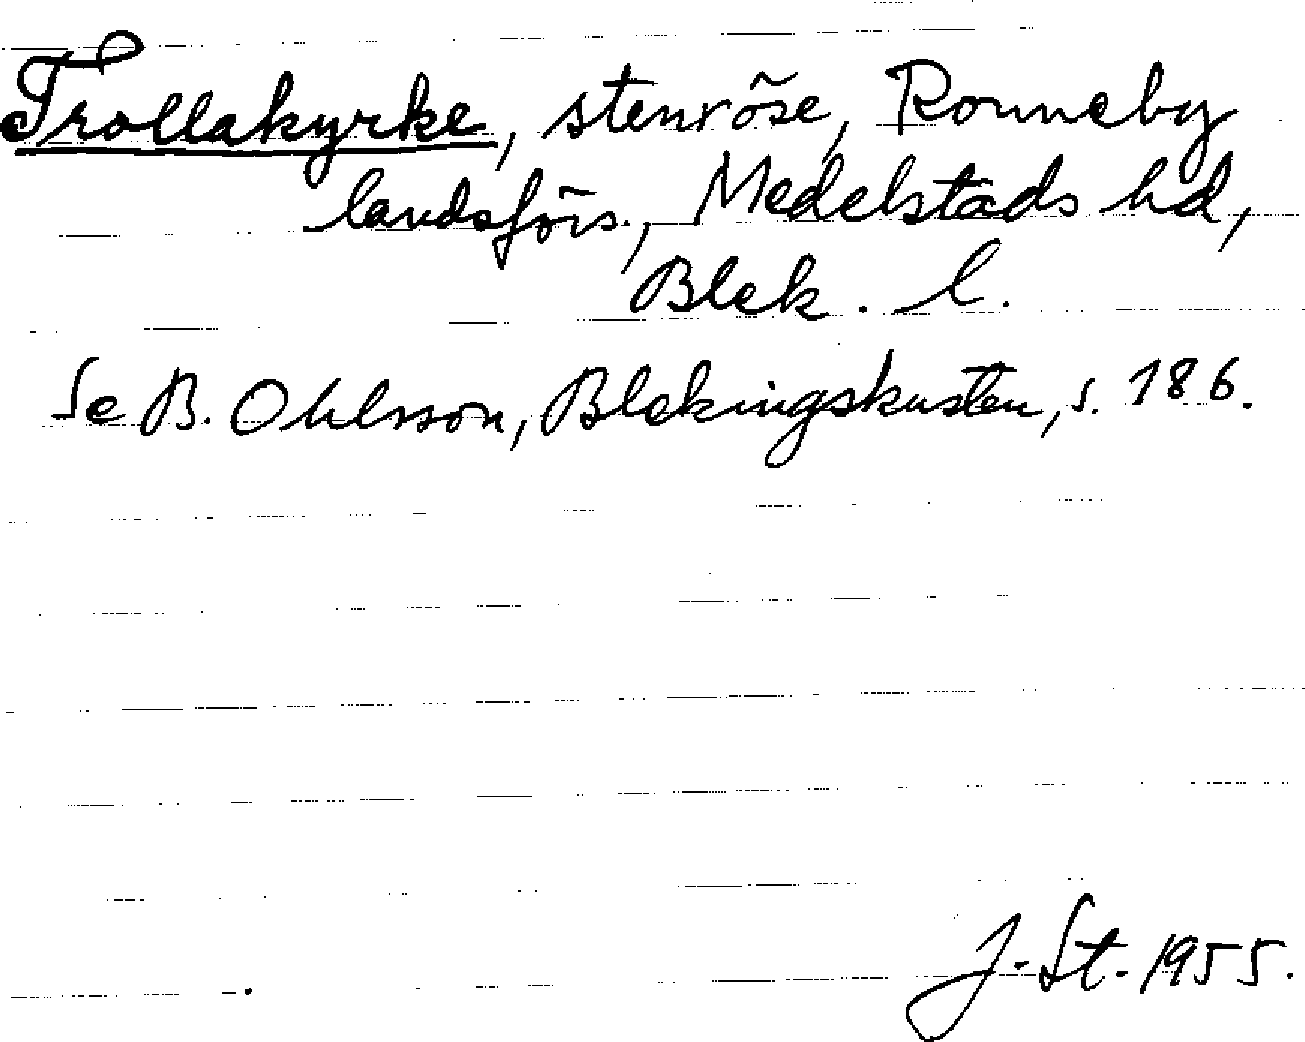 Trollakyrke, stenröse, Ronneby
landsförs., Medelstads hd,
Blek. l.
Se B. Ohlsson, Blekingskusten, s. 186.
J. St. 1955.